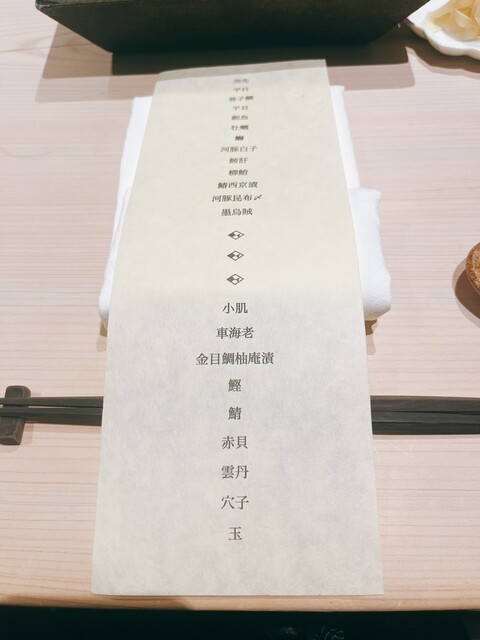 平目
平貝
牡蠣
河豚白子
鮟肝
鰆西京漬
河豚昆布〆
墨烏賊
小肌
車海老
金目鯛柚庵漬
鰹
鯖
赤貝
雲丹
穴子
玉